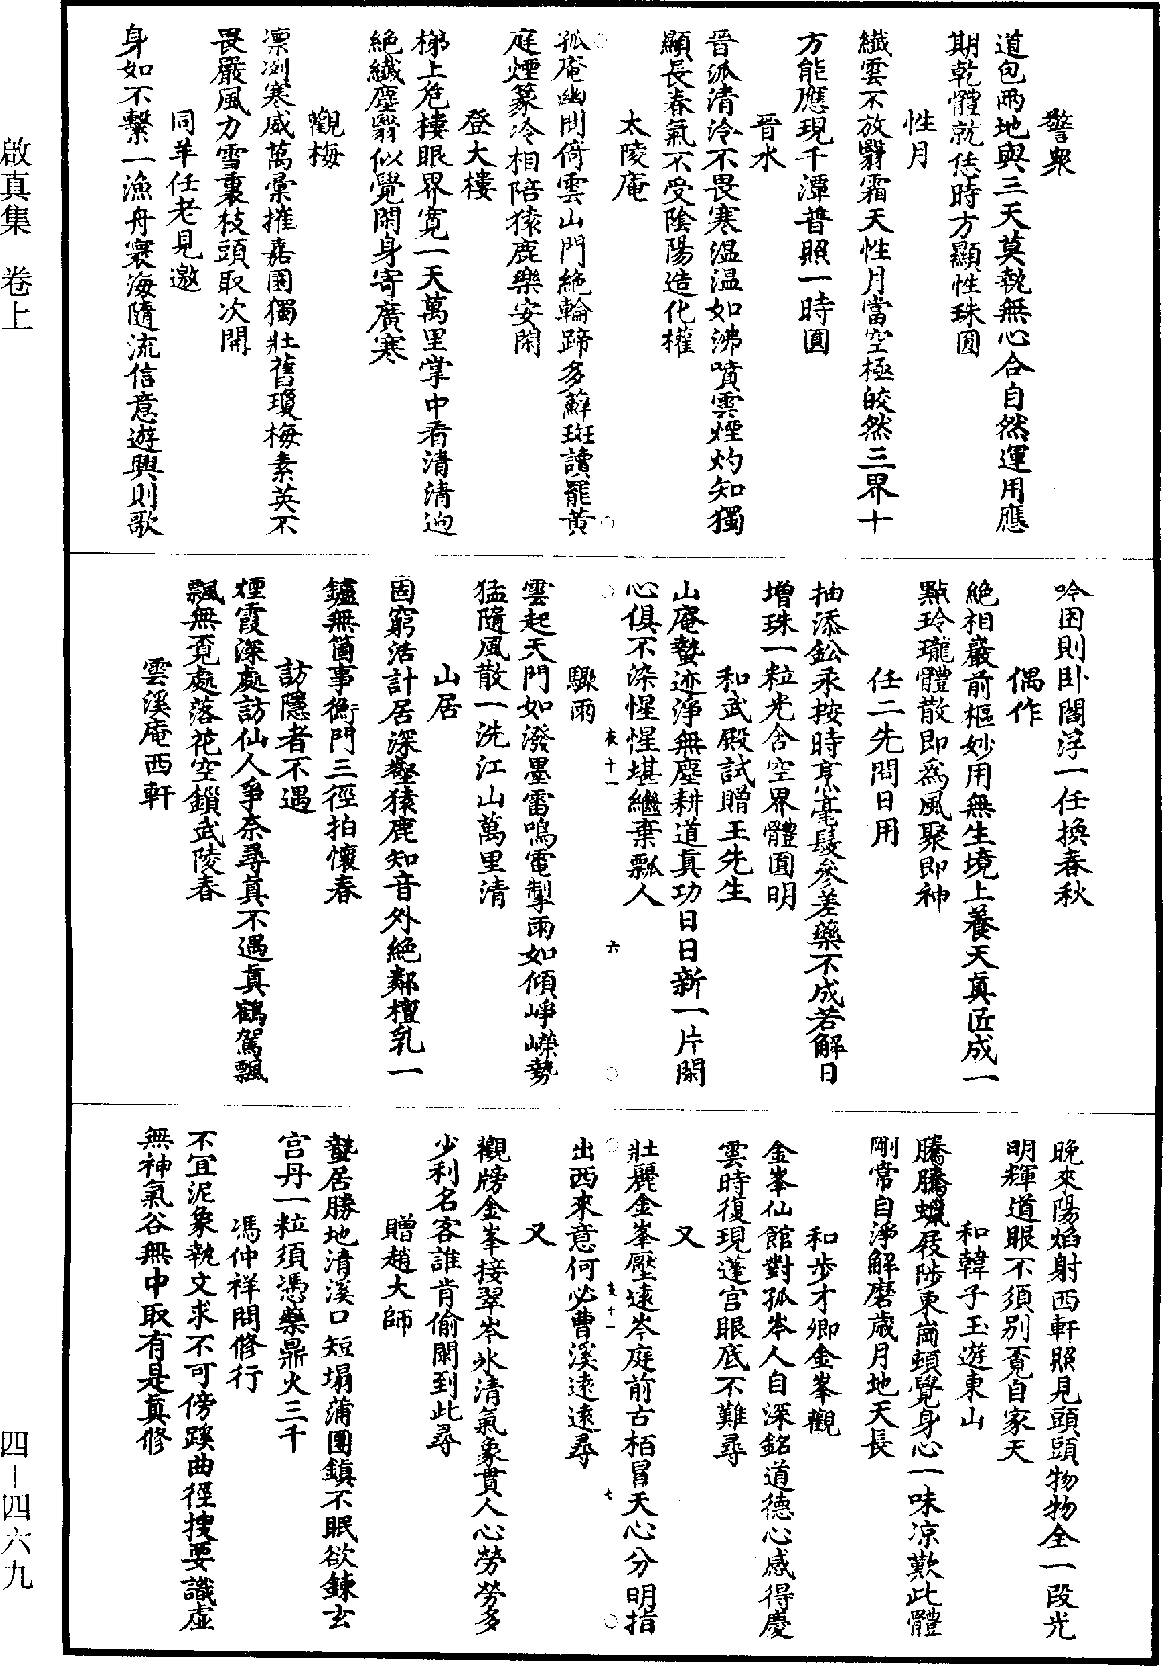 警衆
道包兩地與三天莫執無心合自然運用應
期乾體就恁時方顯性珠圓
性月
纖雲不放翳霜天性月當空極皎然三界十
方能應現千潭普照一時圓
晉水
晉派清泠不畏寒溫溫如沸噴雲煙灼知獨
顯長春氣不受陰陽造化權
太陵庵
孤庵幽閴倚雲山門絶輪蹄多蘚斑讀罷黃
庭煙篆冷相陪猿鹿樂安閑
登大樓
梯上危樓眼界寬一天萬里掌中看清清迥
絶纖塵翳似覺閑身寄廣寒
觀梅
凛冽寒威萬彙摧嘉園獨壯舊瓊梅素英不
畏嚴風力雪裏枝頭取次開
同莘任老見邀
身如不繫一漁舟寰海隨流信意遊興則歌
吟困則卧閻浮一任換春秋
偶作
絶相巖前樞妙用無生境上養天真匠成一
點玲瓏體散即爲風聚即神
任二先問日用
抽添鈆汞按時烹毫髮參差藥不成若解日
增珠一粒光含空界體圓明
和武殿試贈王先生
山庵蟄迹淨無塵耕道真功日日新一片閑
心俱不染惺惺堪繼棄瓢人
驟雨
雲起天門如潑墨雷鳴電掣雨如傾崢嶸勢
猛隨風散一洗江山萬里清
山居
固窮活計居深壑猿鹿知音外絶鄰檀乳一
鑪無箇事衡門三徑拍懷春
訪隱者不遇
煙霞深處訪仙人爭奈尋真不遇真鶴駕飄
飄無覓處落花空鎖武陵春
雲溪庵西軒
晚來陽焰射西軒照見頭頭物物全一段光
明輝道眼不須别覓自家天
和韓子玉遊東山
騰騰蠟屐陟東崗頓覺身心一味凉歎此體
剛常自淨解磨歲月地天長
和步才卿金峯觀
金峯仙館對孤岑人自深銘道德心感得慶
雲時復現蓬宫眼底不難尋
又
壯麗金峯壓遠岑庭前古栢冒天心分明指
出西來意何必曹溪遠遠尋
又
觀牓金峯接翠岑氷清氣象貫人心勞勞多
少利名客誰肯偷閑到此尋
贈趙大師
蟄居勝地清溪口短塌蒲團鎮不眠欲鍊玄
宫丹一粒須憑藥鼎火三千
馮仲祥問修行
不宜泥象執文求不可傍蹊曲徑搜要識虛
無神氣谷無中取有是真修
啟真集　卷上
四－四六九